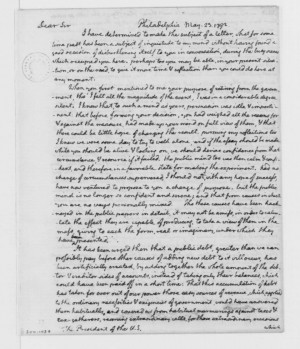 Dear Sir Philadelphia May. 23. 1792
I have determined to make the subject of a letter, what for some
time past has been a subject of inquietude to my mind without having found a
good occasion of disburthening itself to you in conversation, during the busy scenes
which occupied you here. perhaps too you may be able, in your present situa-
tion, or on the road, to give it more time & reflection than you could do here at
any moment.
When you first mentioned to me your purpose of retiring from the govern-
ment, tho' I felt all the magnitude of the event, I was in a considerable degree
silent. I knew that, to such a mind as yours, persuasion was idle & impert-
inent: that before forming your decision, you had weighed all the reasons for
& against the measure, had made up your mind on full view of them, & that
there could be little hope of changing the result. pursuing my reflections too
I knew we were some day to try to walk alone, and if the essay should be made
while you should be alive & looking on, we should derive confidence from that
circumstance, & resource if it failed. the public mind too was then calm & conf-
ident, and therefore in a favorable state for making the experiment. had no
change of circumstances supervened, I should not, with any hope of success,
have now ventured to propose to you a change of purpose. but the public
mind is no longer so confident and serene; and that from causes in which
you are no ways personally mixed. tho these causes have been hack-
neyed in the public papers in detail, it may not be amiss, in order to calcu-
late the effect they are capable of producing, to take a view of them in the
mass, giving to each the form, real or imaginary, under which they
have been presented.
It has been urged then that a public debt, greater than we can
possibly pay before other causes of adding new debt to it will occur, has
been artificially created, by adding together the whole amount of the
debtor & creditor sides of accounts, instead of taking only their balances, which
could have been paid off in a short time: That this accumulation of debt
has taken for ever out of our power those easy sources of revenue, which, applied
to the ordinary necessities & exigencies of government, would have answered
them habitually, and covered us from habitual murmurings against taxes &
tax-gatherers, reserving extraordinary calls, for those extraordinary occasions
The President of the U.S. which